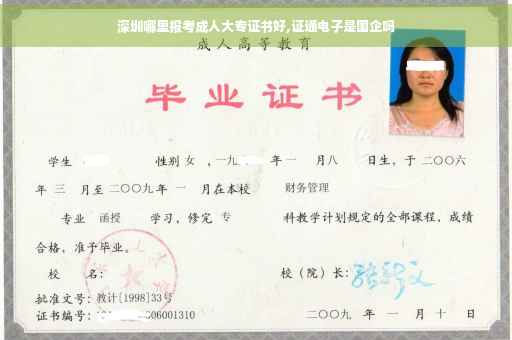 深圳哪里报考成人大专证书好,证通电子是国企吗
成人高等教育
毕业证书
学生 性别 女 ,一九 年 一 月八 日生，于 二〇〇六
年 三 月至二〇〇九年 一 月在本校 财务管理
专业 函授 学习，修完 专 科教学计划规定的全部课程，成绩
合格，准予毕业。
校 名： 校（院）长：
批准文号：教计[1998]33号
证书编号： 06001310 二〇〇九 年 一 月 十 日